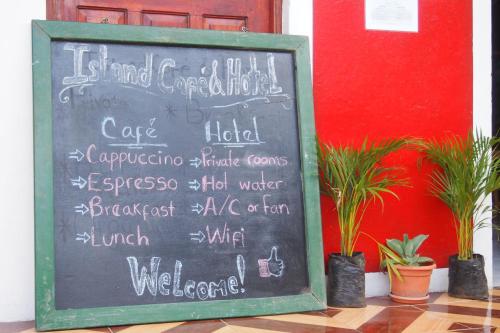 Island Café & Hotel
Café
⇒ Cappuccino
⇒ Espresso
⇒ Breakfast
⇒ Lunch
Hotel
⇒ Private rooms
⇒ Hot water
⇒ A/C or fan
⇒ Wifi
Welcome!